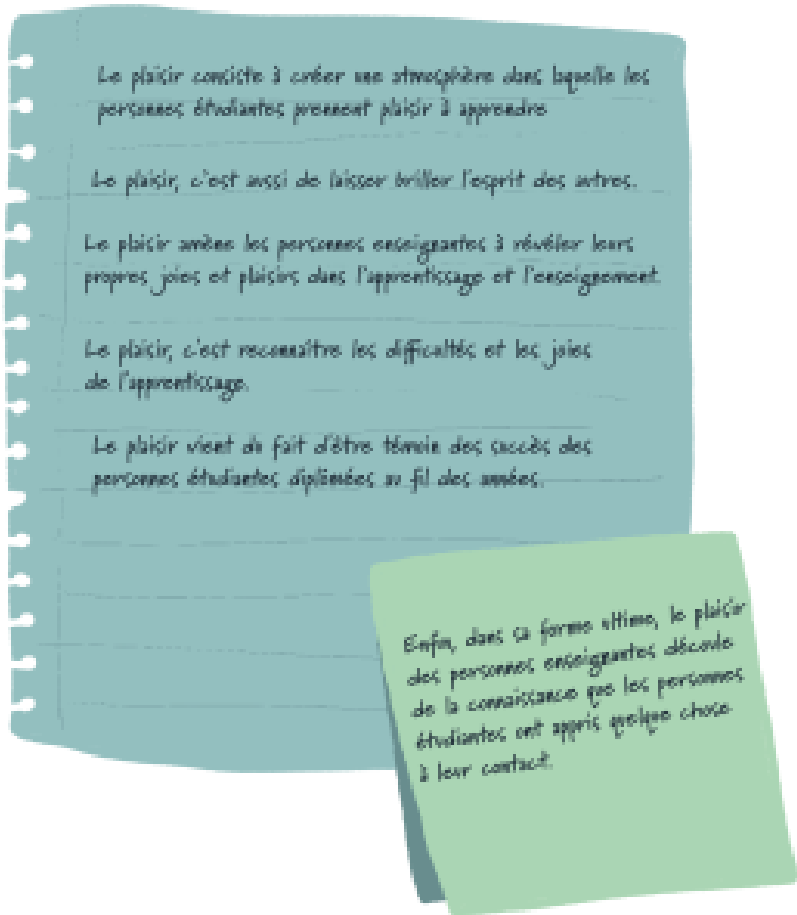 Le plaisir consiste à créer une atmosphère dans laquelle les
personnes étudiantes prennent plaisir à apprendre
Le plaisir, c'est aussi de laisser briller l'esprit des autres.
Le plaisir amène les personnes enseignantes à révéler leurs
propres joies et plaisirs dans l'apprentissage et l'enseignement.
Le plaisir, c'est reconnaître les difficultés et les joies
de l'apprentissage.
Le plaisir vient du fait d'être témoin des succès des
personnes étudiantes diplômées au fil des années.
Enfin, dans sa forme ultime, le plaisir
des personnes enseignantes découle
de la connaissance que les personnes
étudiantes ont appris quelque chose
à leur contact.